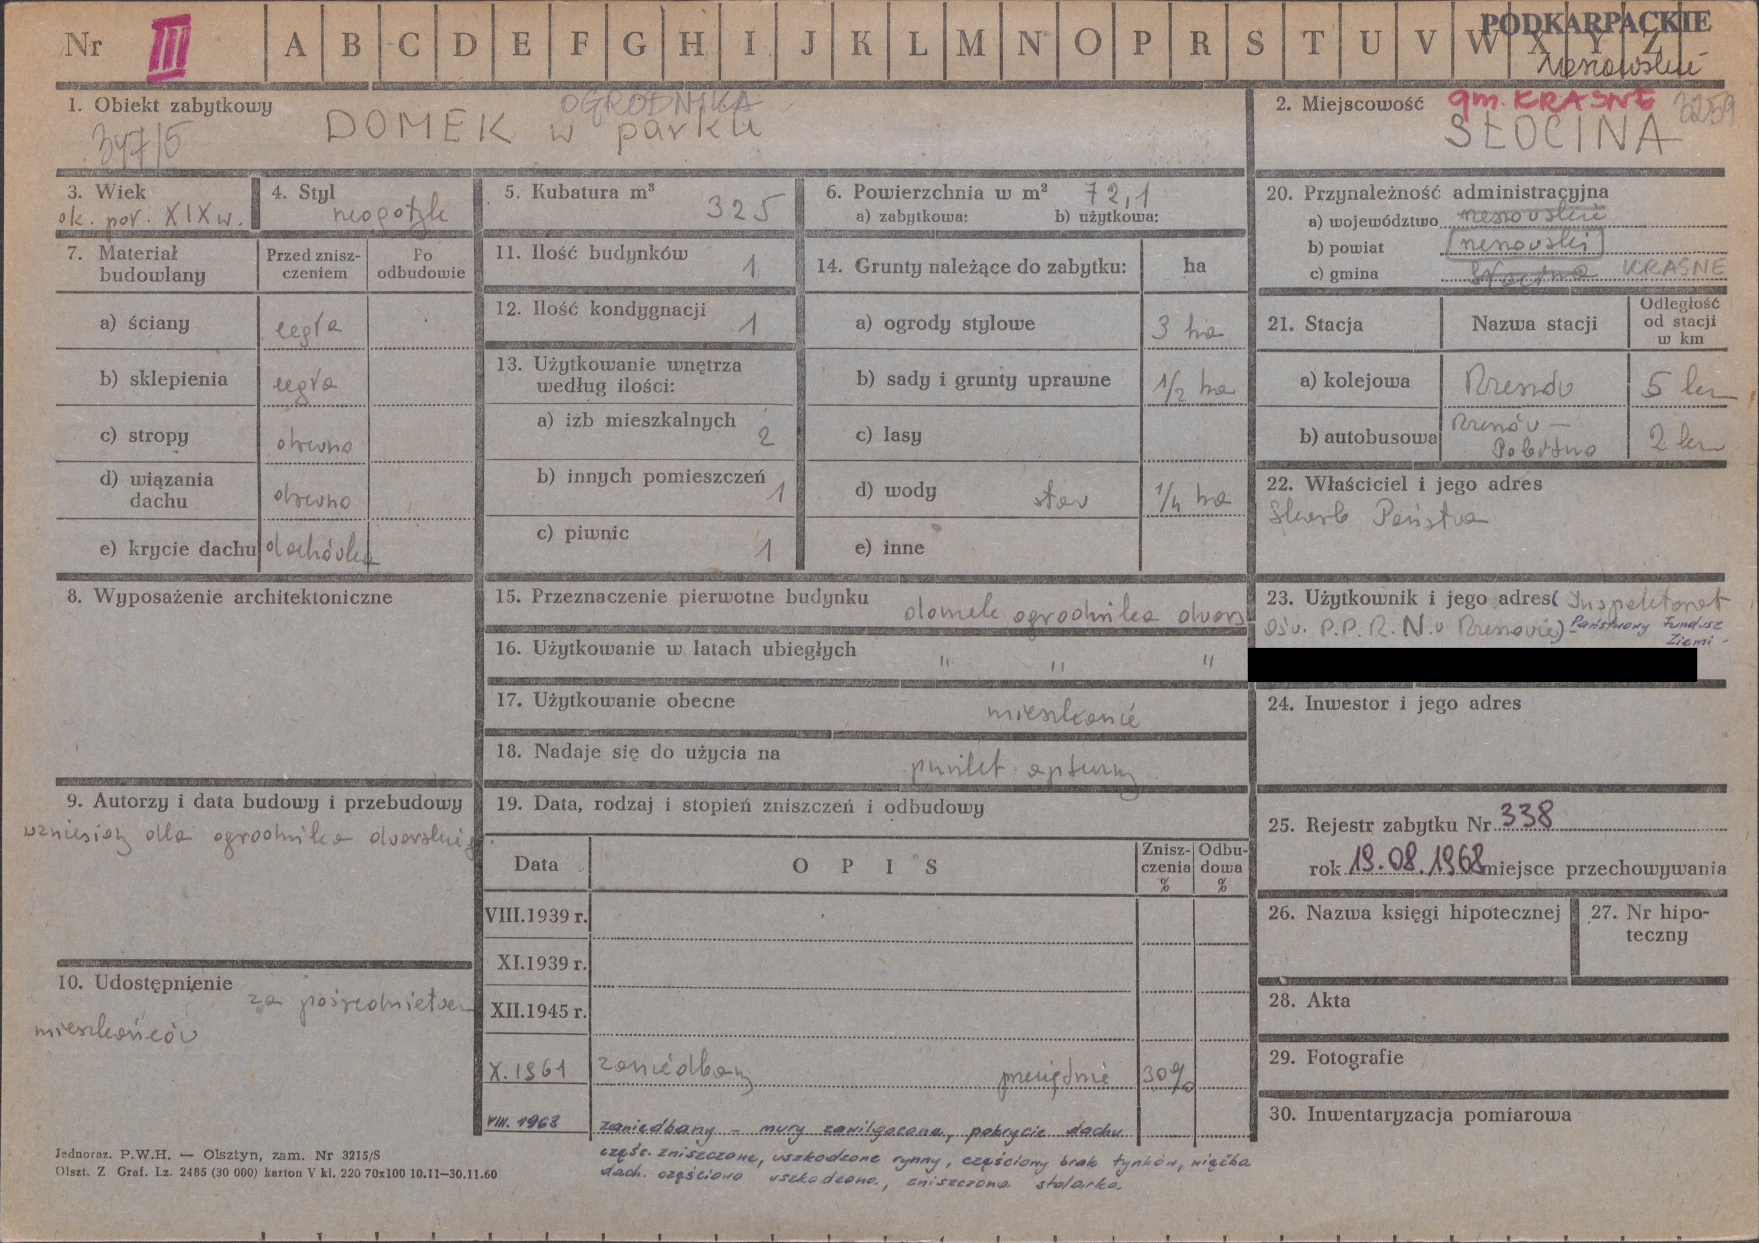 Nr III A B C D E F G H I J K L M N O P R S T U V W X Y Z
PODKARPACKIE
rzeszowskie
1. Obiekt zabytkowy
347/5
OGRODNIKA
DOMEK w parku
2. Miejscowość
gm. KRASNE 3259
SŁOCINA
3. Wiek
ok. poł. XIX w.
4. Styl
neogotyk
5. Kubatura m³
325
6. Powierzchnia w m² 72,1
a) zabytkowa: b) użytkowa:
7. Materiał budowlany
Przed zniszczeniem
Po odbudowie
a) ściany cegła
b) sklepienia cegła
c) stropy drewno
d) wiązania dachu drewno
e) krycie dachu dachówka
8. Wyposażenie architektoniczne
9. Autorzy i data budowy i przebudowy
wzniesiony dla ogrodnika dworskieg
10. Udostępnienie
za pośrednictwem
mieszkańców
11. Ilość budynków 1
12. Ilość kondygnacji 1
13. Użytkowanie wnętrza
według ilości:
a) izb mieszkalnych 2
b) innych pomieszczeń 1
c) piwnic 1
14. Grunty należące do zabytku: ha
a) ogrody stylowe 3 ha
b) sady i grunty uprawne 1/2 ha
c) lasy
d) wody staw 1/4 ha
e) inne
15. Przeznaczenie pierwotne budynku domek ogrodnika dwors
16. Użytkowanie w latach ubiegłych " " "
17. Użytkowanie obecne mieszkanie
18. Nadaje się do użycia na punkt
19. Data, rodzaj i stopień zniszczeń i odbudowy
Data
O P I S
Zniszczenia %
Odbudowa %
VIII.1939 r.
XI.1939 r.
XII.1945 r.
X. 1961 zaniedbany przeciętnie 30%
VIII. 1968 zaniedbany – mury zawilgocone, pokrycie dachu
częśc. zniszczone, uszkodzone rynny, częściowy brak tynków, więźba
dach. częściowo uszkodzona, zniszczona stolarka
20. Przynależność administracyjna
a) województwo rzeszowskie
b) powiat rzeszowski
c) gmina Słocina KRASNE
21. Stacja
Nazwa stacji
Odległość od stacji w km
a) kolejowa Rzeszów 5 km
b) autobusowa Rzeszów –
Pobitno 2 km
22. Właściciel i jego adres
Skarb Państwa
23. Użytkownik i jego adres (Inspektorat
Ośw. P.P.R.N. w Rzeszowie) – Państwowy Fundusz
Ziemi –
24. Inwestor i jego adres
25. Rejestr zabytku Nr 338
rok 19.08.1968 miejsce przechowywania
26. Nazwa księgi hipotecznej
27. Nr hipoteczny
28. Akta
29. Fotografie
30. Inwentaryzacja pomiarowa
Jednoraz. P.W.H. — Olsztyn, zam. Nr 3215/S
Olszt. Z. Graf. Lz. 2485 (30 000) karton V kl. 220 70x100 10.11—30.11.60